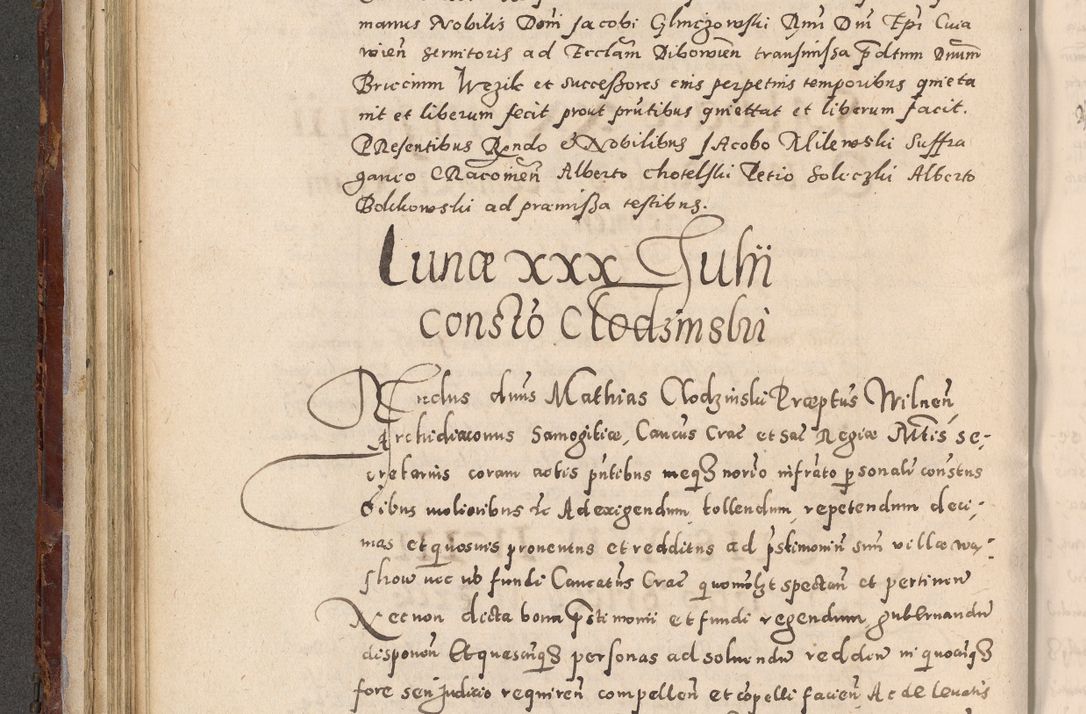 manus Nobilis Dom̄ Jacobi Glinczowski Rm̄i Dn̄i Ep̄i Cuia
wien̄ seruitoris ad Eccl̄am Dibowien̄ transmissa p̄dctum Dnum̄
Briccium Wezik et successores eius perpetuis temporibus quieta
uit et liberum fecit prout pn̄tibus quiettat et liberum facit.
PResentibus Rendo et Nobilibus JAcobo Milewski Suffra
ganeo CRacouien̄ Alberto Chotelski Petro Soleczki Alberto
Bolikowski ad præmissa testibus.
Lunæ xxx Julii
Consto Clodzinski
Rndus dnus Mathias Clodzinski Præptus Wilnen̄
Archidiaconus Samogitiæ, Cancus Crac̄ et Sac̄ Regiæ Mtis se-
cretarius coram actis pn̄tibus meqȝ norio infrāto personalr̄ constus
Oibus melioribus etc Ad exigendum, tollendum, repetendum deci-
mas et quosuis prouentus et redditus ad p̄stimoniū suū villæ wa-
show nec nō fundi Cancatus Crac̄ quomōlȝt spectan̄ et pertinen̄
Necnon dicta bona p̄stimonii et fundi regendum, gubernandū
disponen̄ Et quascūqȝ personas ad soluendū redden̄ in quocūqȝ
fore seu Judicio requiren̄ compellen̄ et copelli facien̄ Ac de leuatis